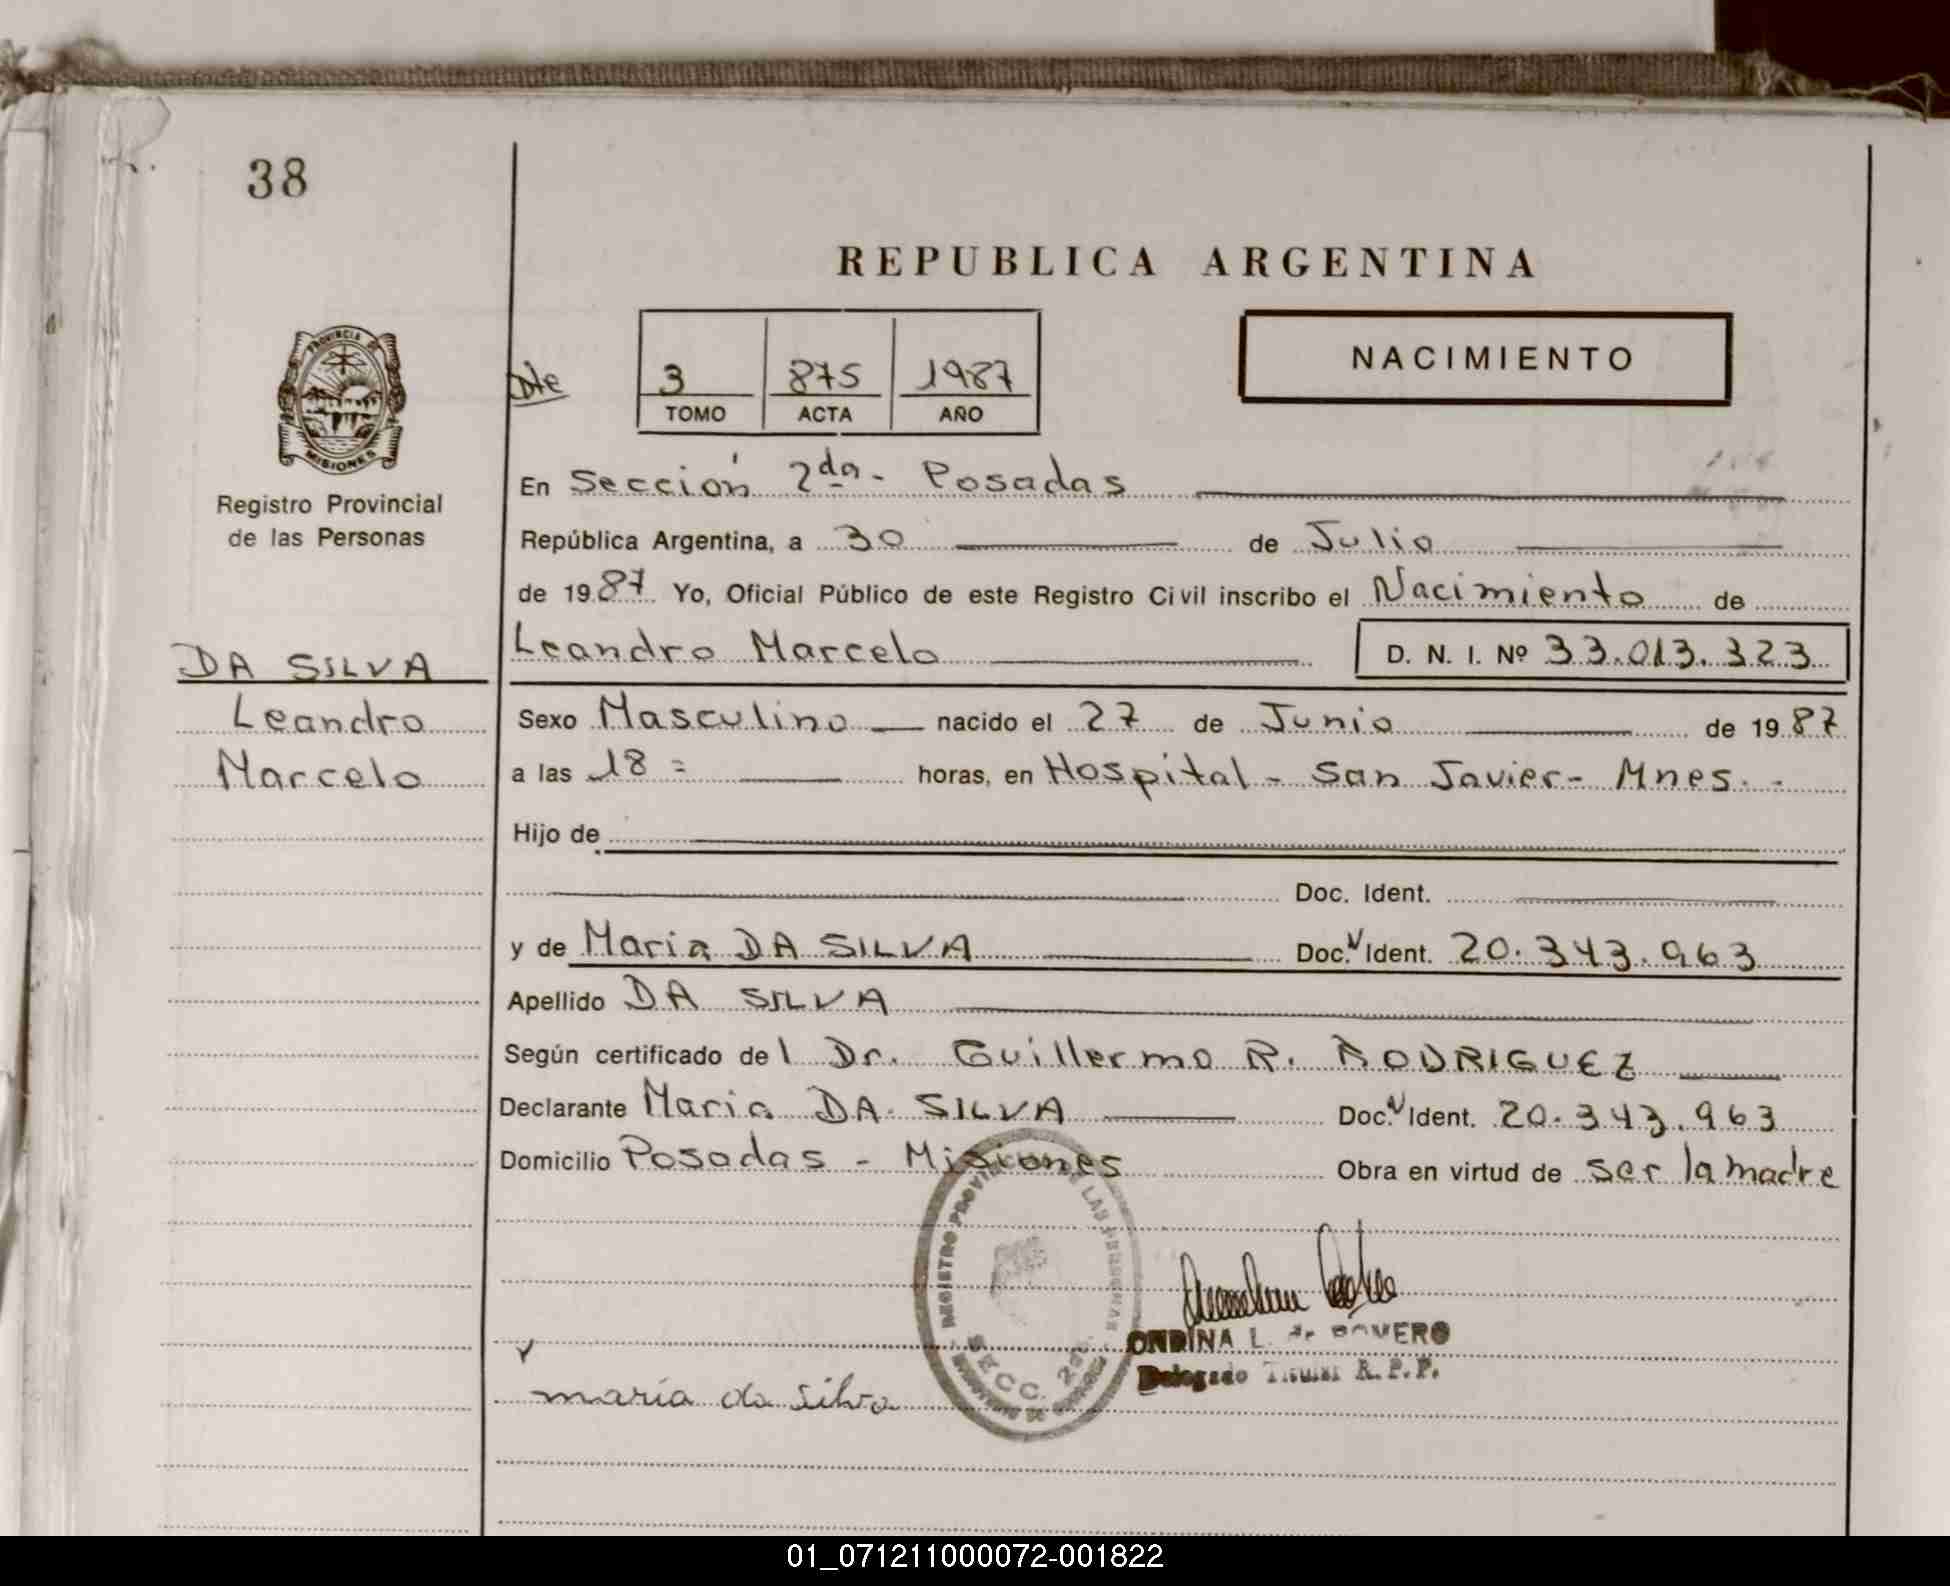 38
REPUBLICA ARGENTINA
PROVINCIA DE
MISIONES
Registro Provincial
de las Personas
3 875 1987
TOMO ACTA AÑO
NACIMIENTO
En Sección 2da - Posadas
República Argentina, a 30 de Julio
de 1987 Yo, Oficial Público de este Registro Civil inscribo el Nacimiento de
Leandro Marcelo D. N. I. Nº 33.013.323
DA SILVA
Leandro
Marcelo
Sexo Masculino nacido el 27 de Junio de 1987
a las 18 = horas, en Hospital - San Javier - Mnes. -
Hijo de
Doc. Ident.
y de Maria DA SILVA Doc. Ident. 20.343.963
Apellido DA SILVA
Según certificado del Dr. Guillermo R. RODRIGUEZ
Declarante Maria DA SILVA Doc. Ident. 20.343.963
Domicilio Posadas - Misiones Obra en virtud de ser la madre
REGISTRO PROVINCIAL DE LAS PERSONAS
SECC. 2da.
ONDINA L. de BOVERO
Delegado Titular R. P. P.
maría da silva
01_071211000072-001822